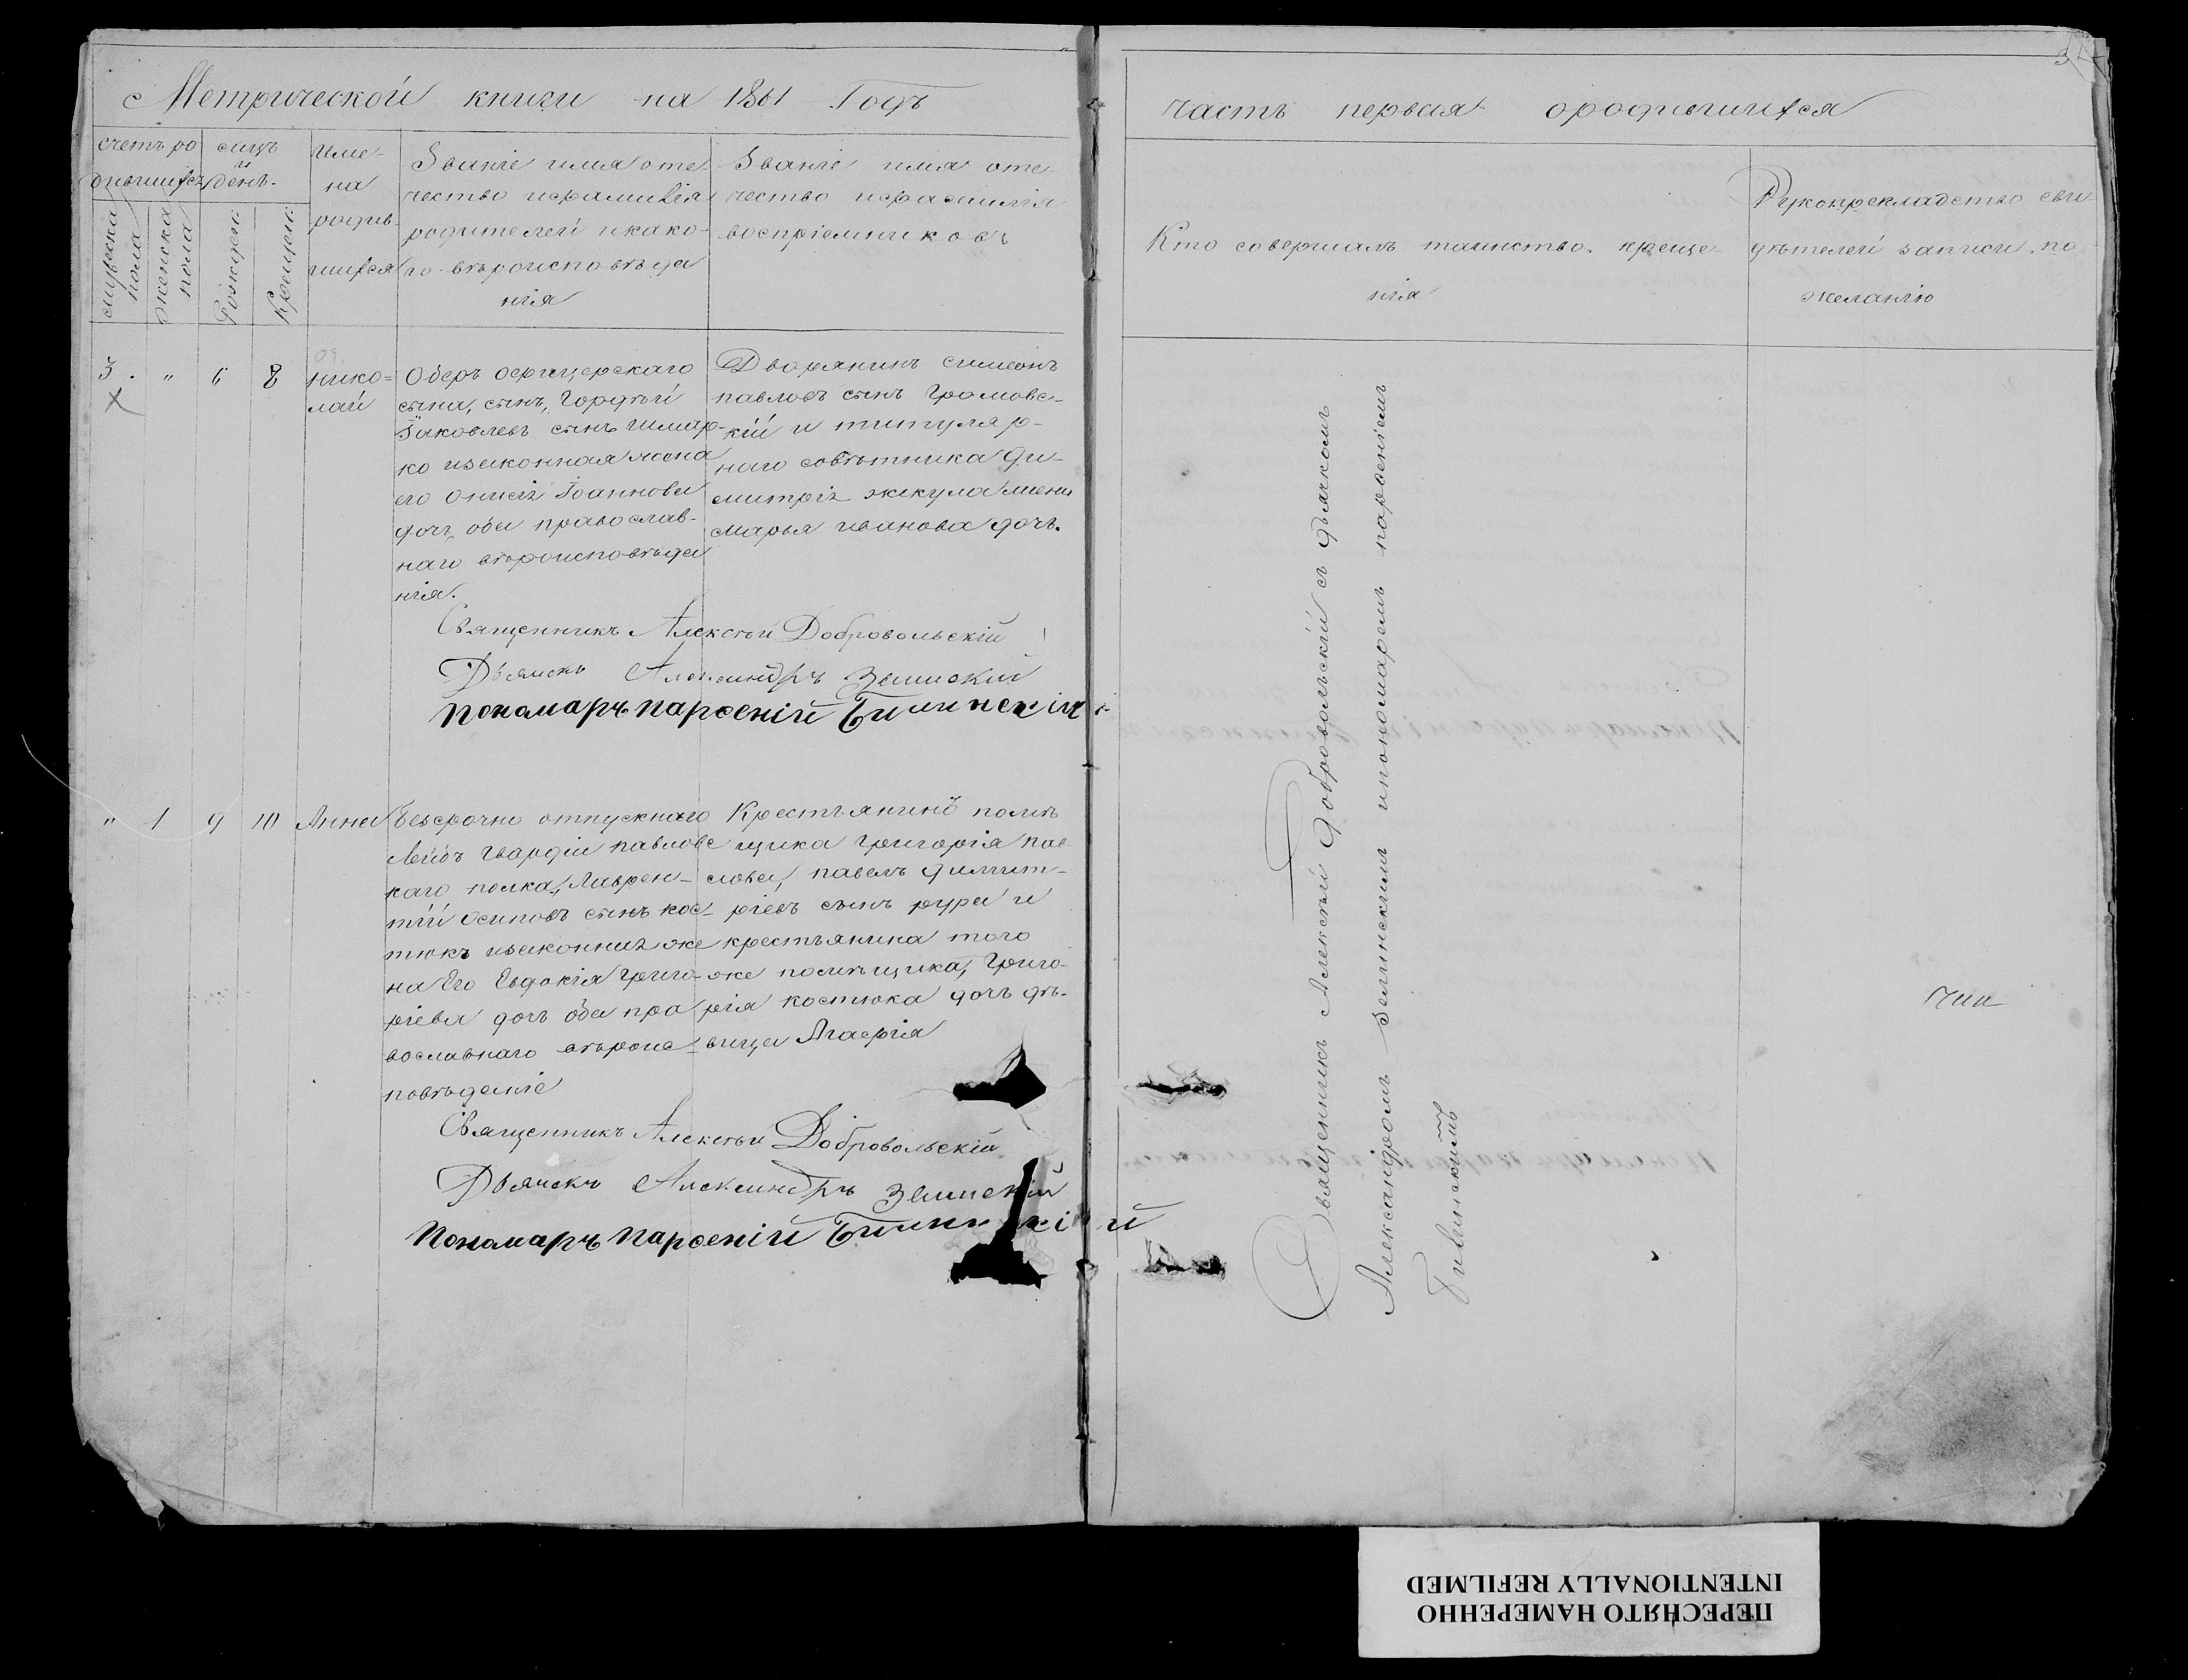 Метрической книги на 1861 Годъ
часть первая ородившихся
счетъ ро
дившихся
мѣсяцъ
и
день.
мужеска
пола
женска
пола
Рожден:
Крещен:
Име-
на
родив-
шихся
Званіе имя оте-
чество ифамилія
родителей икако-
го вѣроисповѣда
нія
Званіе имя оте-
чество ифамилія
воспріемниковъ
Кто совершалъ таинство креще-
нія
Рукоприкладство сви-
дѣтелей записи по
желанію
3. " 6 8
Нико=
лай
Оберъ офицерскаго
сына, сынъ, Гордѣй
Іаковлевъ сынъ Шмар-
ко изаконная жена
его Онисія Іоаннова
дочь, оба православ-
наго вѣроисповѣда
нія.
Дворянинъ Симеонъ
павловъ сынъ Громовс-
кій и титуляр-
наго совѣтника Ди-
митрія жена
Марья иванова дочь.
Священникъ Алексѣй Добровольскій
Дьячекъ Александръ Зелинскій
Пономарь Парѳеній Билинскій
" 1 9 10 Анна
Безсрочно отпускнаго
Лейбъ Гвардіи павловс
каго полка, Лаврен-
тій Осиповъ сынъ Кос-
тюкъ изаконная же
на Его Евдокія Григо-
ріева дочь оба пра
вославнаго вѣроис-
повѣданіе
Крестьянинъ помѣ
щика Григорія Пав
лова, павелъ димит-
ріевъ сынъ рура и
крестьянина того
же помѣщика, Григо-
рія костюка дочь дѣ-
вица Агафія
Священникъ Алексѣй Добровольскій
Дьячекъ Александръ Зелинскій
Пономарь Парѳеній Билинскій
Священникъ Алексѣй Добровольскій съ дьячкомъ
Александромъ Зелинскимъ ипономаремъ парѳеніемъ
Билинскимъ
ПЕРЕСНЯТО НАМЕРЕННО
INTENTIONALLY REFILMED